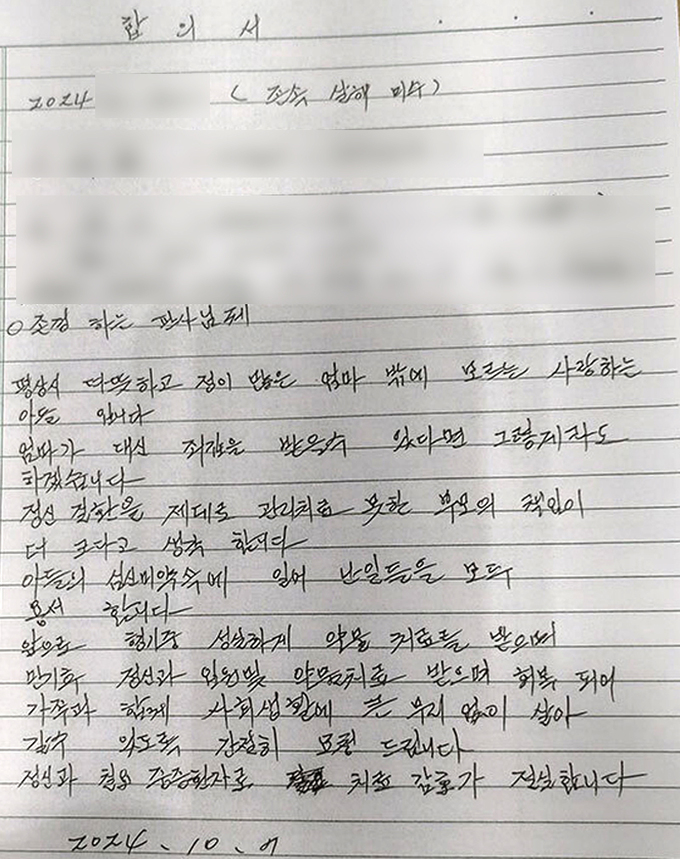 합 의 서
2024 ( 존속 살해 미수 )
○ 존경 하는 판사님께
평상시 따뜻하고 정이 많은 엄마 밖에 모르는 사랑하는
아들 입니다
엄마가 대신 죄값을 받을수 있다면 그렇게라도
하겠습니다
정신 질환을 제대로 관리치료 못한 부모의 책임이
더 크다고 생각 합니다
아들의 심신미약속에 일어 난일들을 모두
용서 합니다
앞으로 형기중 성실하게 약물 치료를 받으며
만기후 정신과 입원및 약물치료 받으며 회복 되어
가족과 함께 사회생활에 큰 무리 없이 살아
갈수 있도록 간절히 요청 드립니다
정신과 중증환자로 치료 감호가 절실합니다
2024. 10. 7